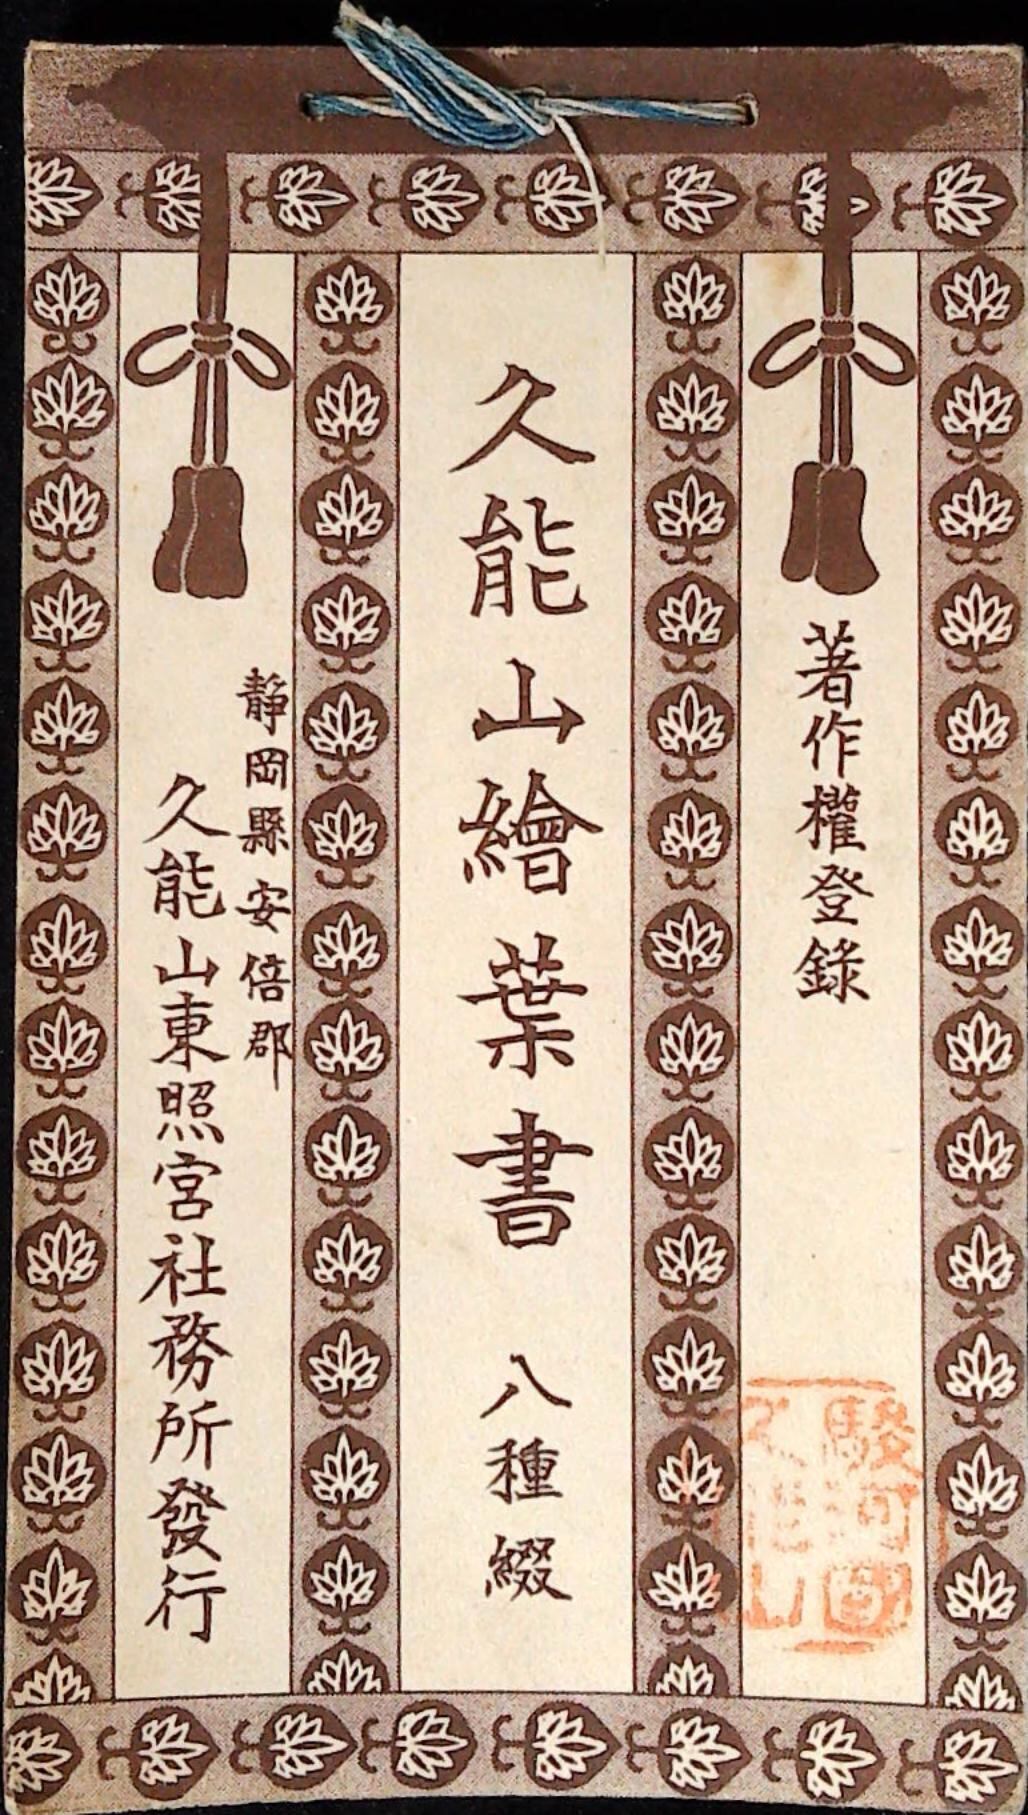 著作權登錄
久能山繪葉書 八種綴
靜岡縣安倍郡
久能山東照宮社務所發行
駿河國
久能山